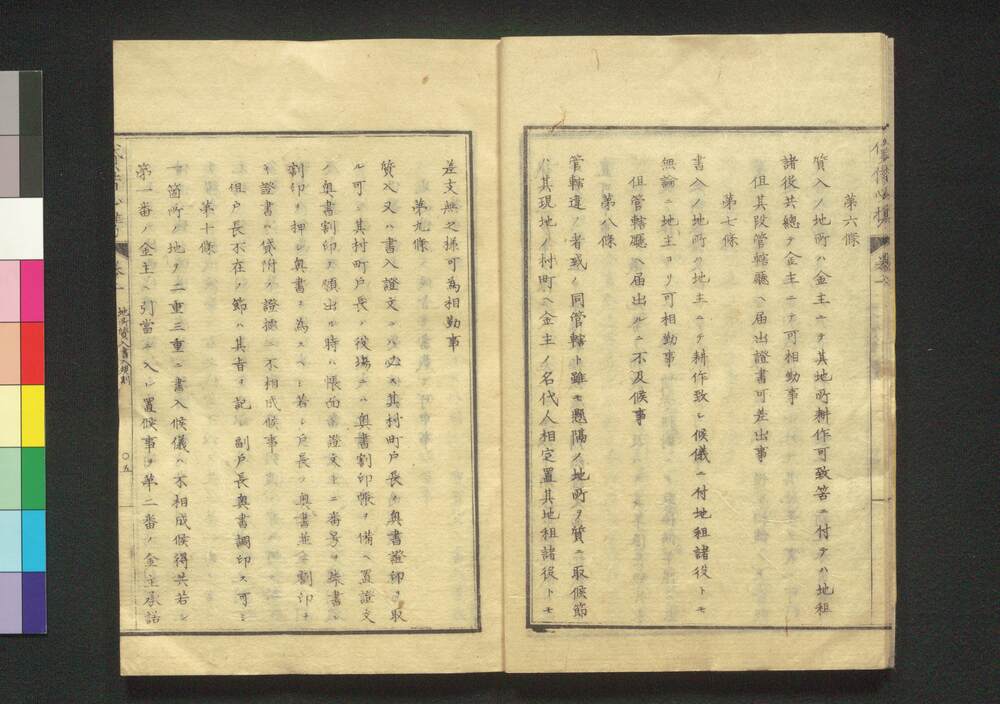 第六條
質入ノ地所ハ金主ニテ其地所耕作可致筈ニ付テハ地租
諸役共總テ金主ニテ可相勤事
但其段管轄廳ヘ届出證書可差出事
第七條
書入ノ地所ハ地主ニテ耕作致シ候儀ニ付地租諸役トモ
無論ニ地主ヨリ可相勤事
但管轄廳ヘ届出ルニ不及候事
第八條
管轄違ノ者或ハ同管轄ト雖モ懸隔ノ地所ヲ質ニ取候節
ハ其現地ノ村町ヘ金主ノ名代人相定置其地租諸役トモ
差支無之様可為相勤事
第九條
質入又ハ書入證文ニハ必ス其村町戸長ノ奥書證印ヲ取
ル可シ其村町戸長ノ役場ニハ奥書割印帳ヲ備ヘ置證文
ノ奥書割印ヲ願出ル時ハ帳面ト證文トニ番号ヲ朱書シ
割印ヲ押シ奥書ヲ為スヘシ若シ戸長ノ奥書並ニ割印ナ
キ證書ハ貸附ノ證據ニ不相成候事
但戸長不在ノ節ハ其旨ヲ記シ副戸長奥書調印ス可シ
第十條
一箇所ノ地ヲ二重三重ニ書入候儀ハ不相成候得共若シ
第一番ノ金主ヘ引當ニ入レ置候事ヲ第二番ノ金主承諾
地所質入書入規則
〇五